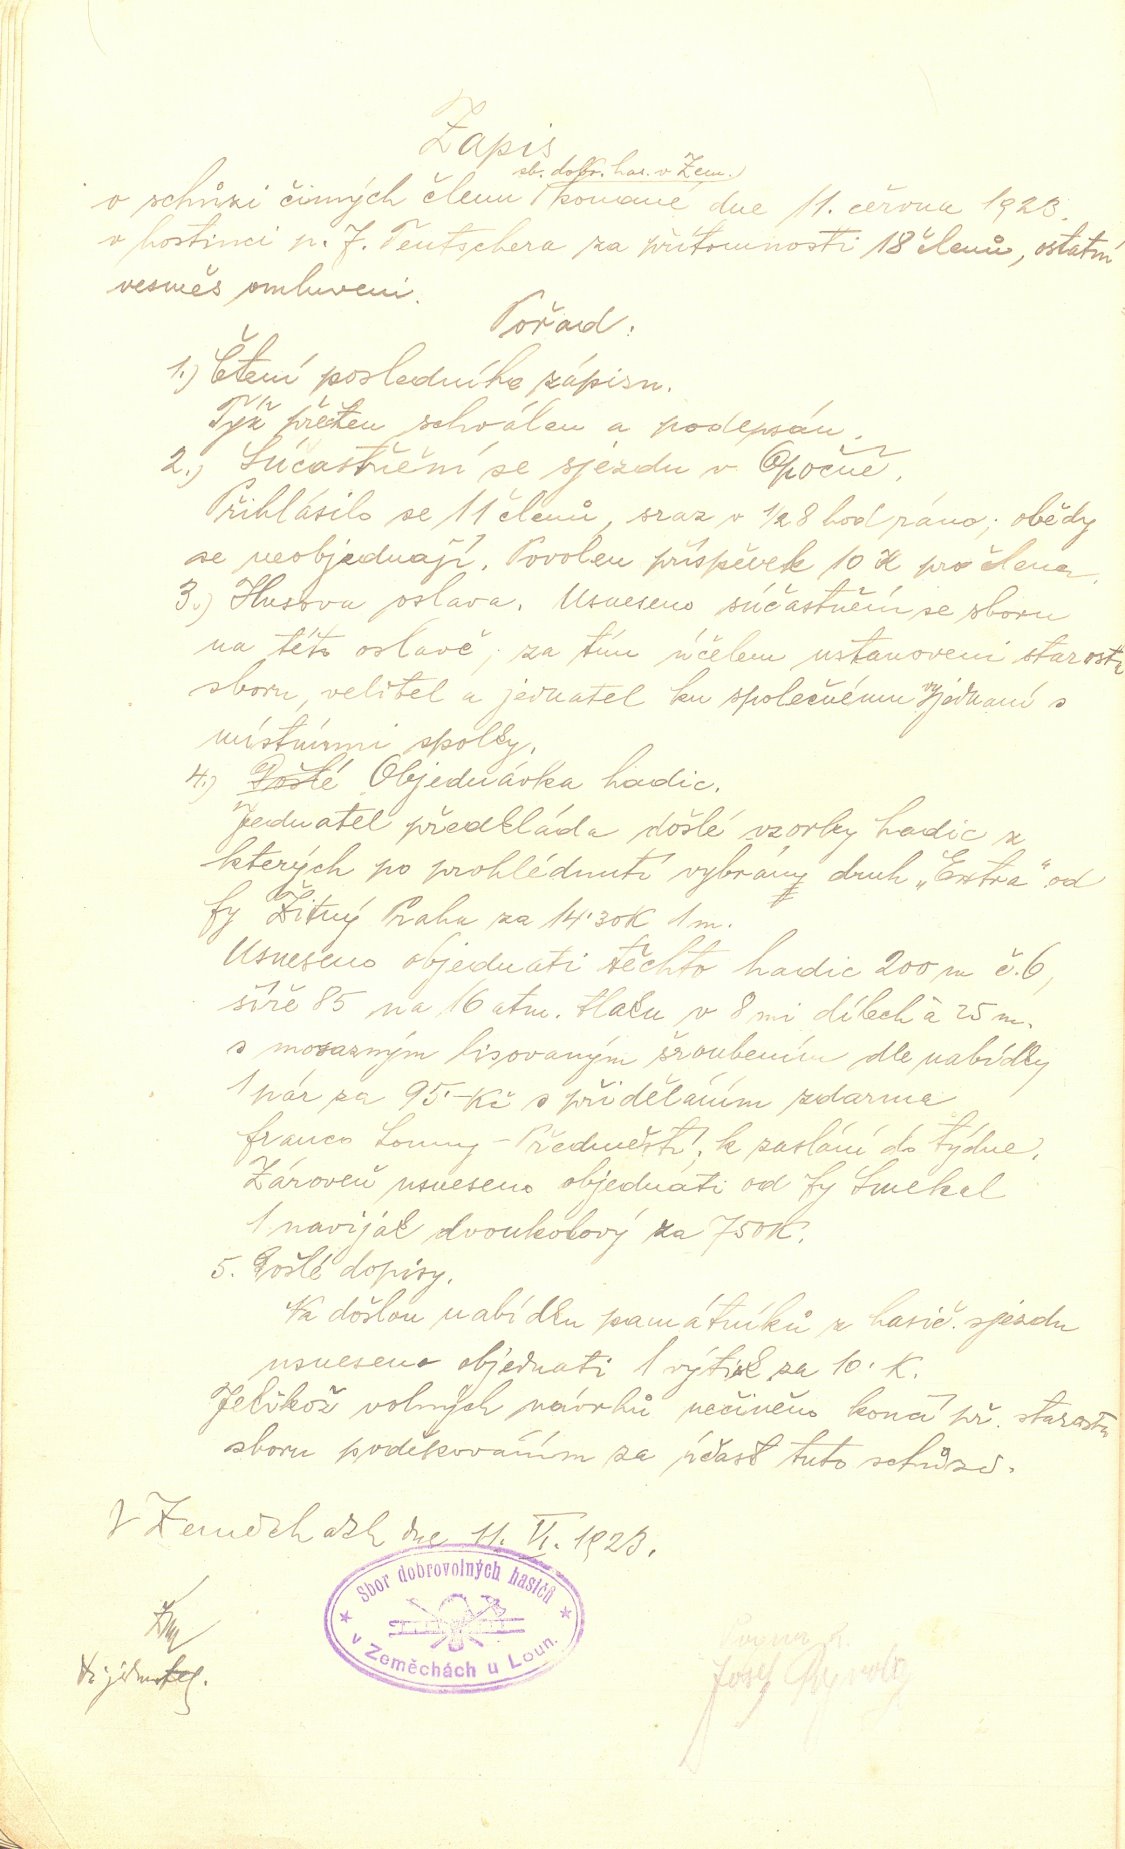 Zapis
sb. dobr. has. v Zem.
o schůzi činných členu konané dne 11. června 1923.
v hostinci p. J. Teutschera za přítomnosti 18 členů, ostatní
vesměs omluveni.
Pořad:
1.) Čtení posledního zápisu.
Týž přečten schválen a podepsán.
2.) Súčastnění se sjezdu v Opočně.
Přihlásilo se 11 členů, sraz v 1/2 8 hod ráno; obědy
se neobjednají. Povolen příspěvek 10 K pro člena.
3.) Husova oslava. Usneseno súčastnění se sboru
na této oslavě; za tím účelem ustanoveni starosta
sboru, velitel a jednatel ku společnému vyjednaní s
místními spolky.
4.) Došlé Objednávka hadic.
Jednatel předkláda došlé vzorky hadic z
kterých po prohlédnutí vybrány druh „Extra" od
fy Žitný Praha za 14·30K 1 m.
Usneseno objednati těchto hadic 200 m č. 6,
šíře 85 na 16 atm. tlaku v 8 mi dílech à 25 m.
s mosazným lisovaným šroubením dle nabídky
1 pár za 95·- Kč s přiděláním zdarma
franco Louny - Předměstí; k zaslání do týdne.
Zároveň usneseno objednati od fy Smekal
1 naviják dvoukolový za 750K.
5. Došlé dopisy.
Na došlou nabídku památníků z hasič. sjezdu
usneseno objednati 1 výtisk za 10· K.
Jelikož volných návrhů nečiněno končí př. starosta
sboru poděkováním za účast tuto schůzi.
V Zeměchách dne 11. VI. 1923.
Sbor dobrovolných hasičů
v Zeměchách u Loun.
jednatel.
Josef